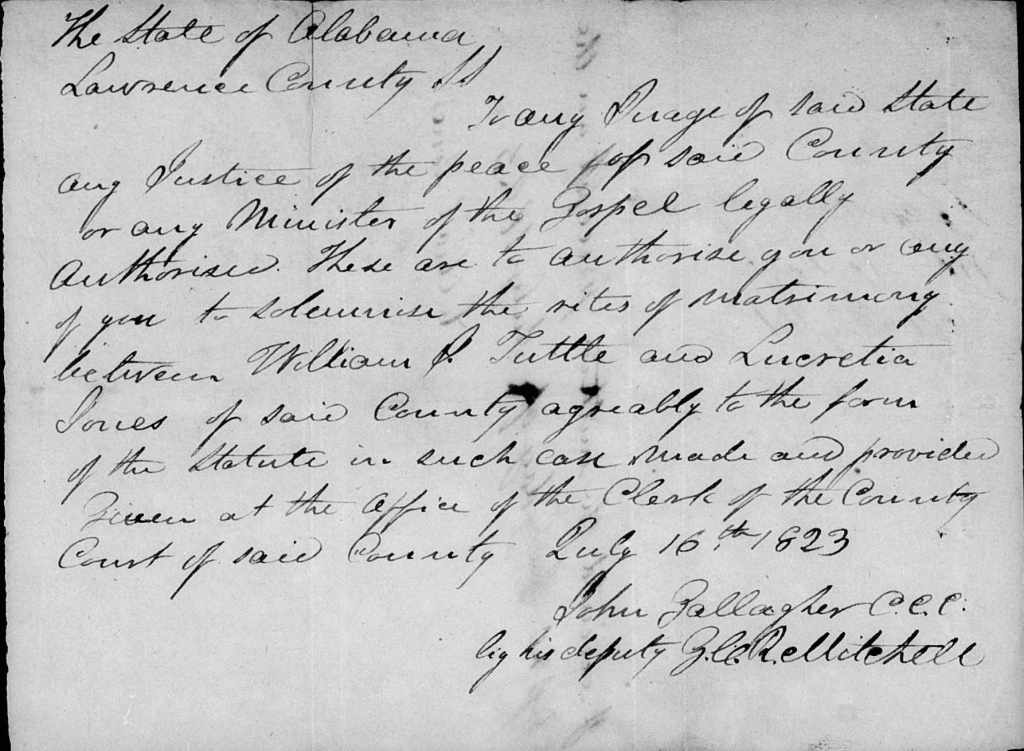 The State of Alabama
Lawrence County SS
To any Judge of said State
any Justice of the peace of said County
or any Minister of the Gospel legally
authorised. These are to authorise you or any
of you to solemnise the rites of matrimony
between William J. Tuttle and Lucretia
Jones of said County agreably to the form
of the Statute in such case made and provided
Given at the office of the Clerk of the County
Court of said County July 16th 1823
John Gallagher C.C.C.
by his deputy Mitchell